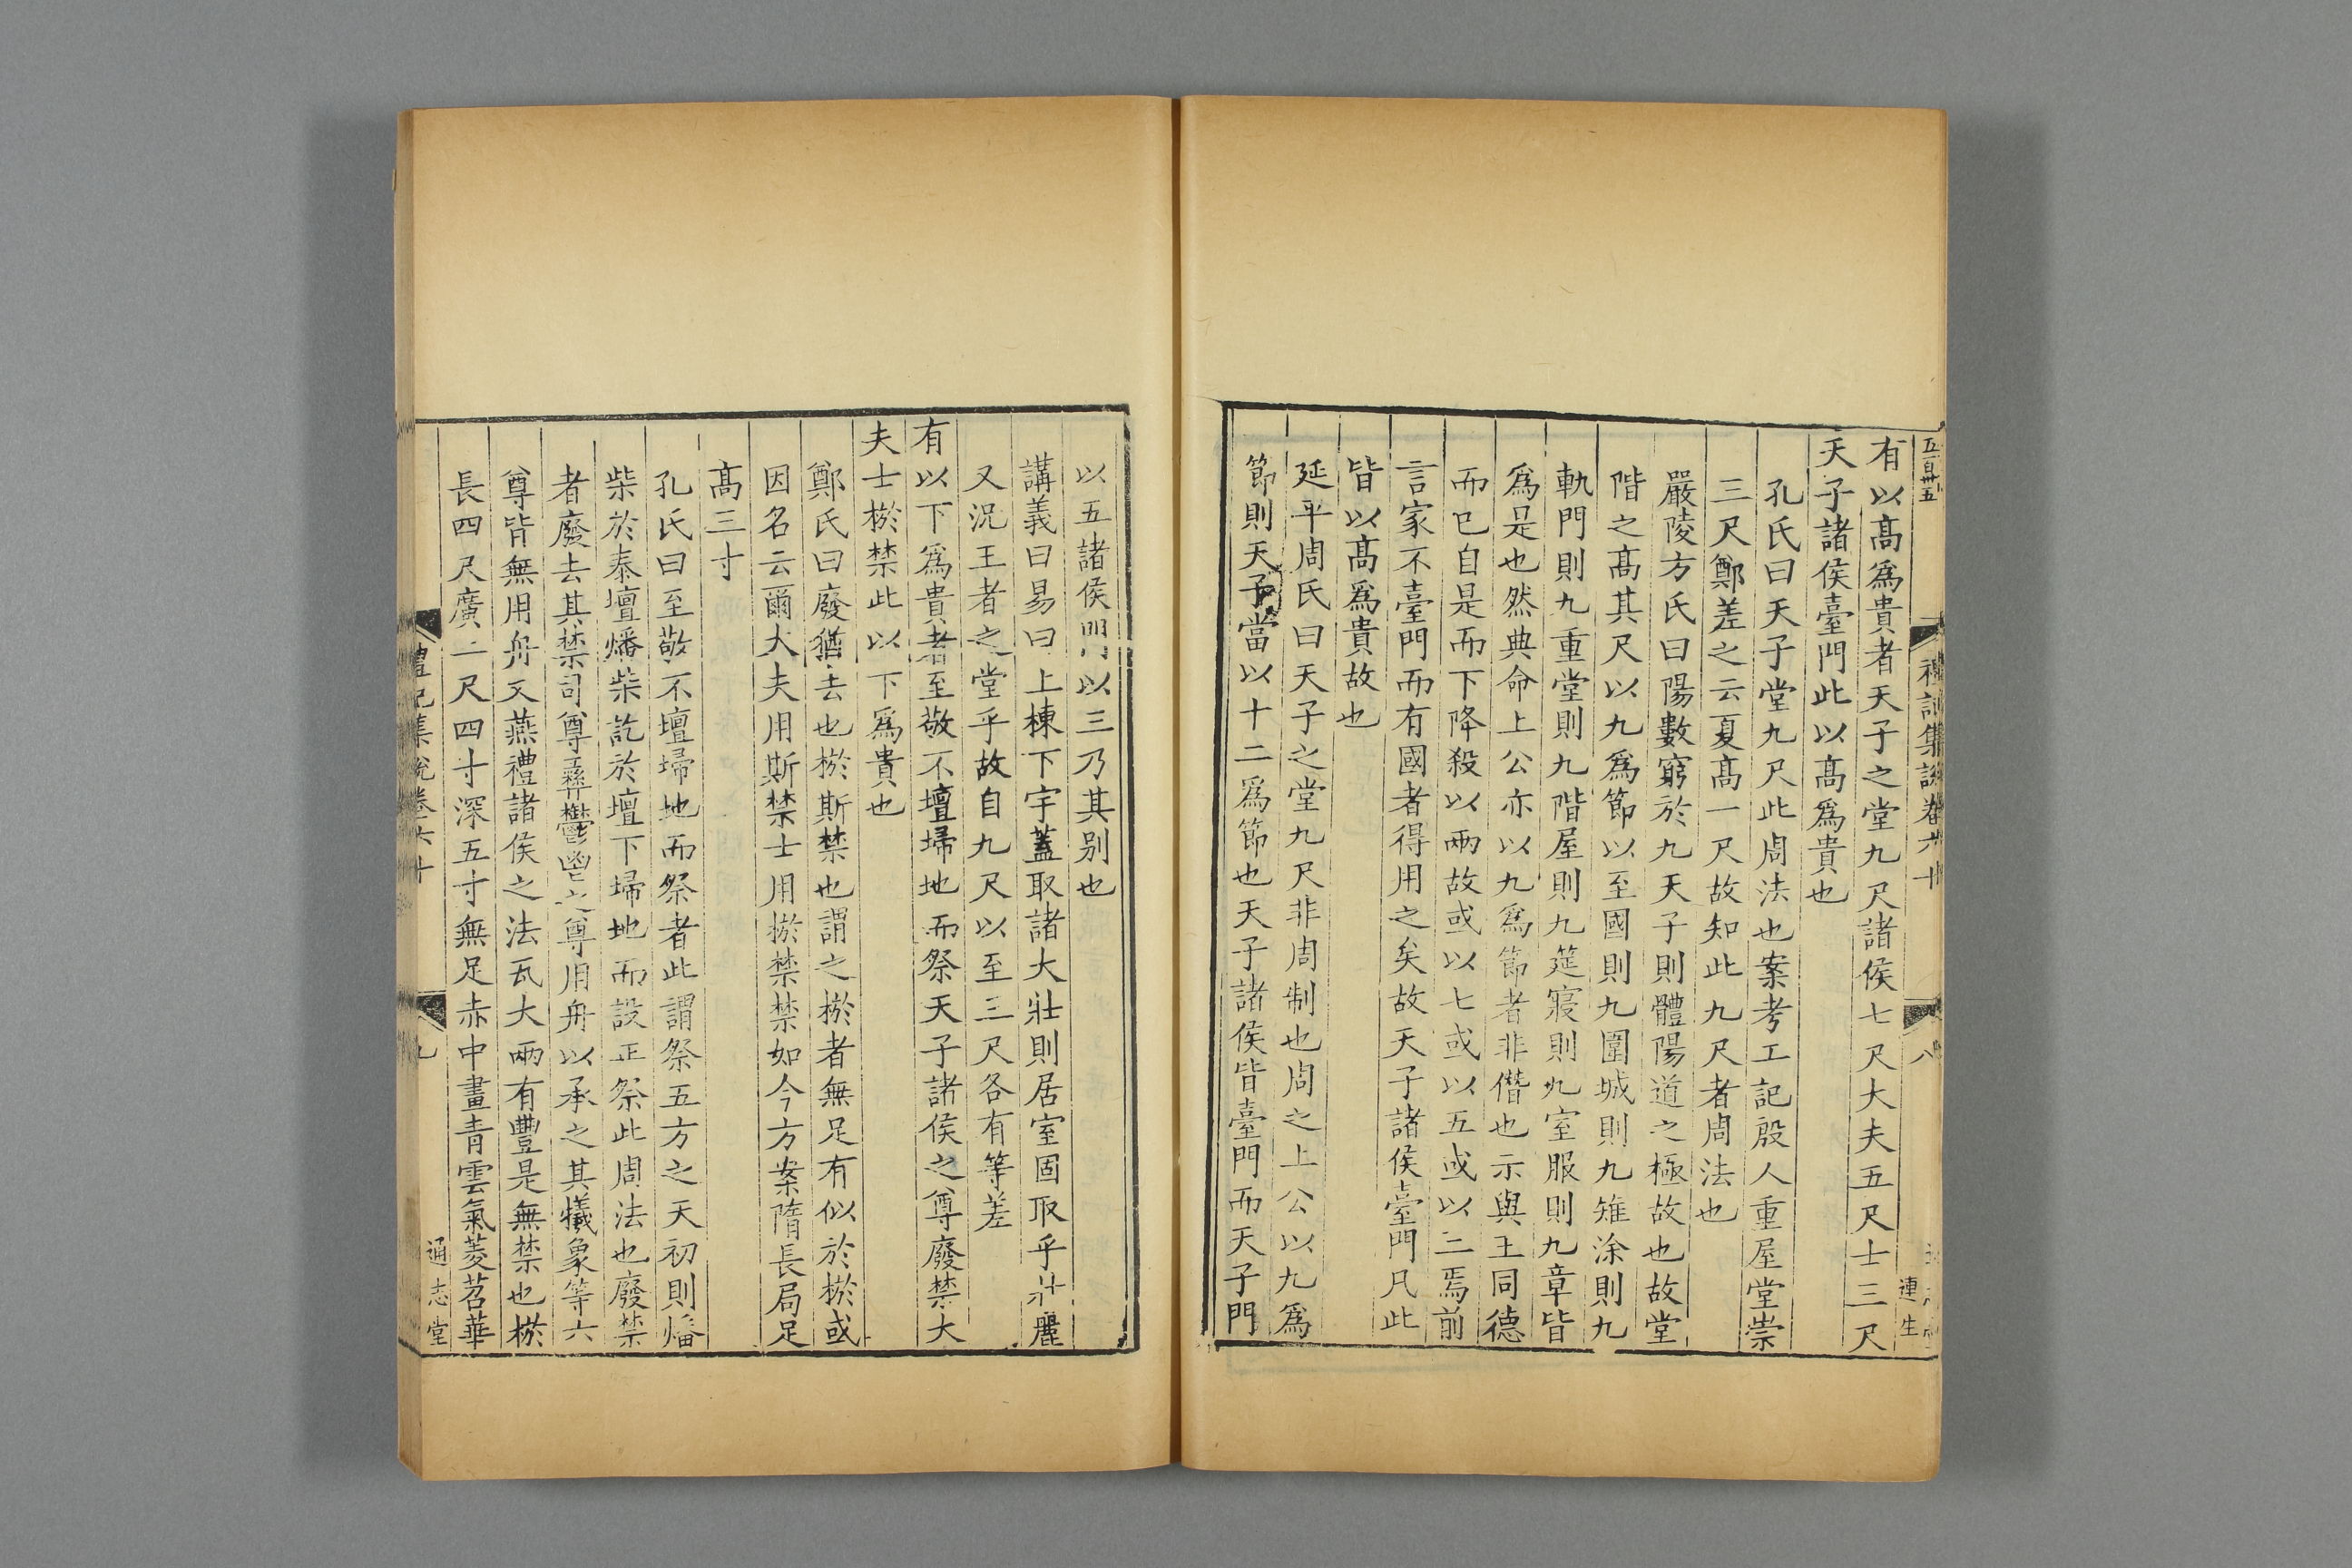 五百卅五
禮記集說卷六十
八
連生
有以髙爲貴者天子之堂九尺諸侯七尺大夫五尺士三尺
天子諸侯臺門此以髙爲貴也
孔氏曰天子堂九尺此周法也案考工記殷人重屋堂崇
三尺鄭差之云夏髙一尺故知此九尺者周法也
嚴陵方氏曰陽數窮於九天子則體陽道之極故也故堂
階之髙其尺以九爲節以至國則九圍城則九雉涂則九
軌門則九重堂則九階屋則九筵寢則九室服則九章皆
爲是也然典命上公亦以九爲節者非僭也示與王同德
而已自是而下降殺以兩故或以七或以五或以三焉前
言家不臺門而有國者得用之矣故天子諸侯臺門凡此
皆以髙爲貴故也
延平周氏曰天子之堂九尺非周制也周之上公以九爲
節則天子當以十二爲節也天子諸侯皆臺門而天子門
以五諸侯門以三乃其别也
講義曰易曰上棟下宇蓋取諸大壯則居室固取乎壯麗
又況王者之堂乎故自九尺以至三尺各有等差
有以下爲貴者至敬不壇埽地而祭天子諸侯之尊廢禁大
夫士棜禁此以下爲貴也
鄭氏曰廢猶去也棜斯禁也謂之棜者無足有似於棜或
因名云爾大夫用斯禁士用棜禁禁如今方案隋長局足
髙三寸
孔氏曰至敬不壇埽地而祭者此謂祭五方之天初則燔
柴於泰壇燔柴訖於壇下埽地而設正祭此周法也廢禁
者廢去其禁司尊彝鬱鬯之尊用舟以承之其犧象等六
尊皆無用舟又燕禮諸侯之法瓦大兩有豐是無禁也棜
長四尺廣二尺四寸深五寸無足赤中畫青雲氣菱苕華
禮記集說卷六十
九
通志堂